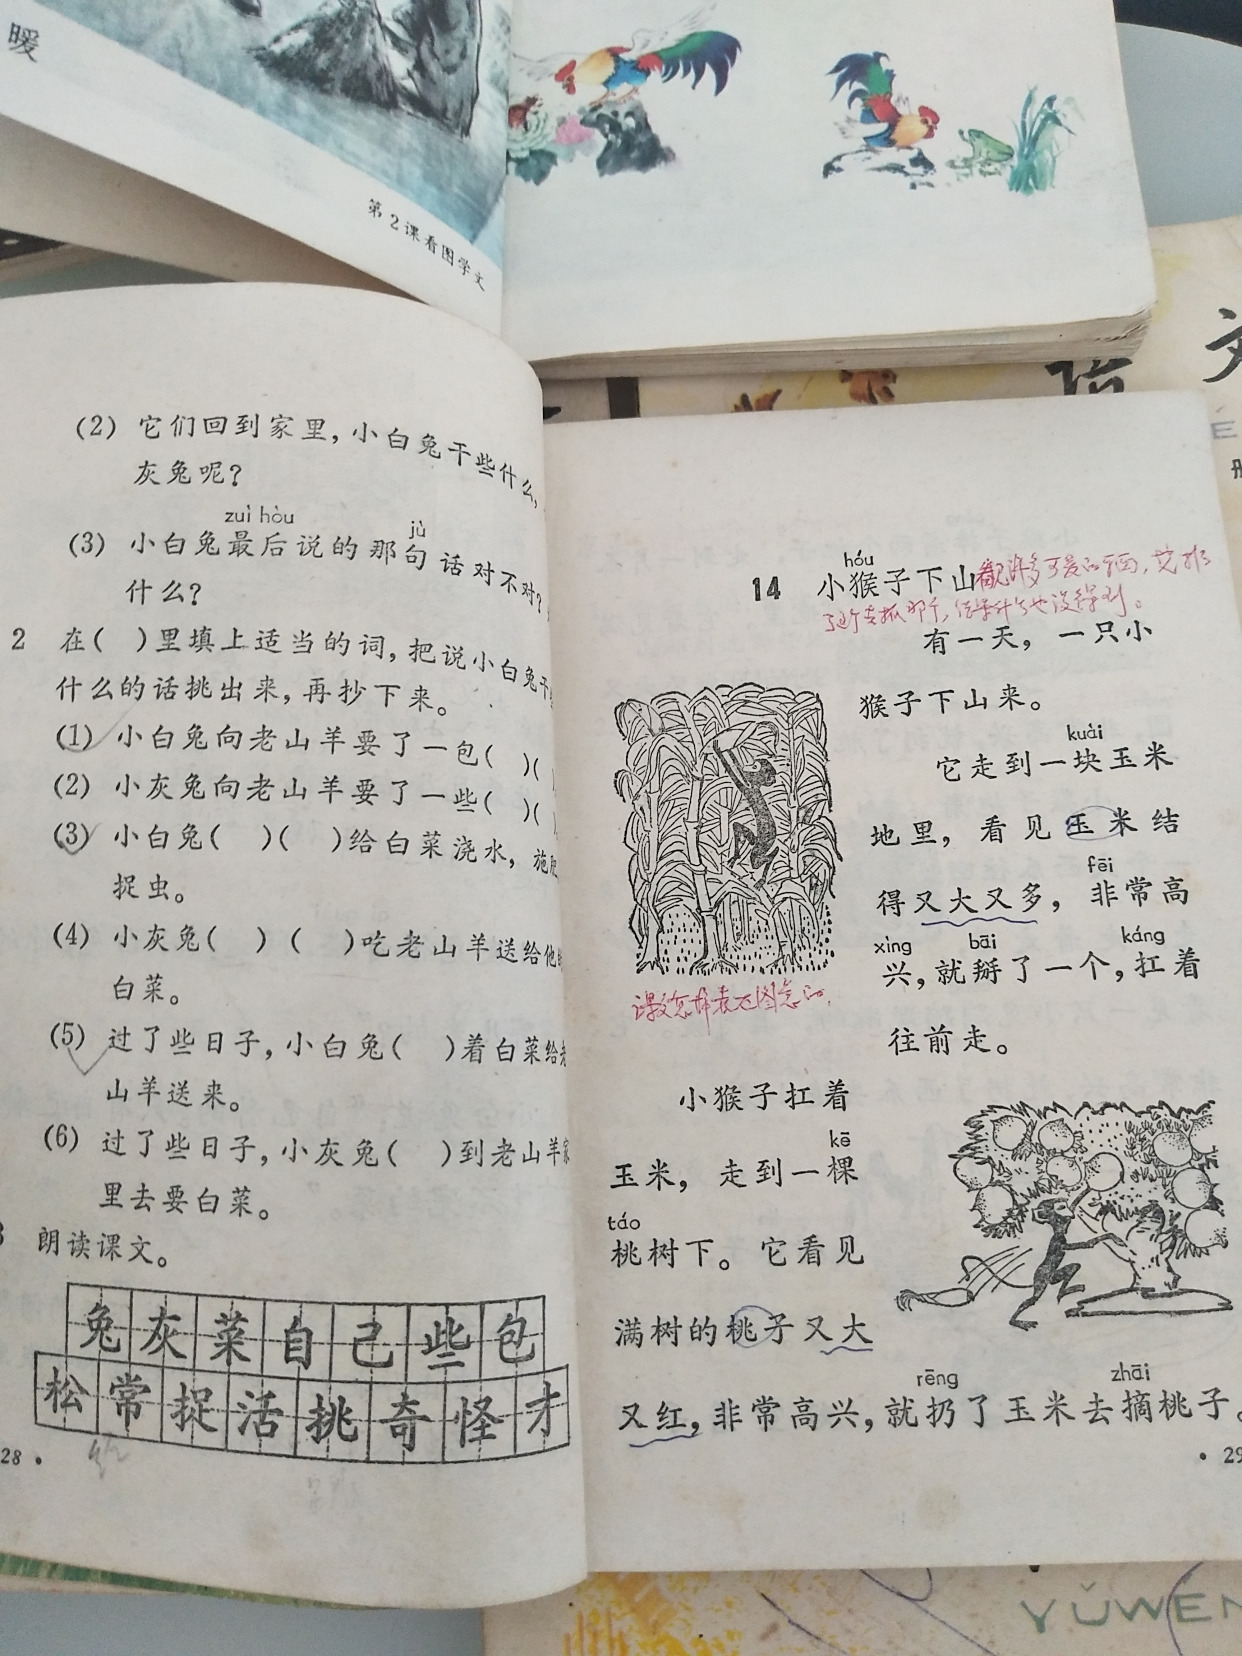 暖
第2课看图学文
(2) 它们回到家里，小白兔干些什么，
灰兔呢？
zuì hòu
jù
(3) 小白兔最后说的那句话对不对？
什么？
2 在( )里填上适当的词，把说小白兔干
什么的话挑出来，再抄下来。
(1) 小白兔向老山羊要了一包( )( )
(2) 小灰兔向老山羊要了一些( )( )
(3) 小白兔( )( )给白菜浇水，施肥
捉虫。
(4) 小灰兔( )( )吃老山羊送给他的
白菜。
(5) 过了些日子，小白兔( )着白菜给老
山羊送来。
(6) 过了些日子，小灰兔( )到老山羊家
里去要白菜。
3 朗读课文。
兔灰菜自己些包
松常捉活挑奇怪才
28
hóu
14 小猴子下山
有一天，一只小
猴子下山来。
kuài
它走到一块玉米
地里，看见玉米结
fēi
得又大又多，非常高
xìng bāi káng
兴，就掰了一个，扛着
往前走。
小猴子扛着
kē
玉米，走到一棵
táo
桃树下。它看见
满树的桃子又大
rēng zhāi
又红，非常高兴，就扔了玉米去摘桃子。
29
语文
YǓWEN